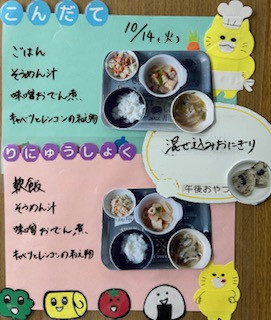 こんだて
10/14(火)
ごはん
そうめん汁
味噌おでん煮
キャベツとレンコンの和え物
混ぜ込みおにぎり
午後おやつ
りにゅうしょく
軟飯
そうめん汁
味噌おでん煮
キャベツとレンコンの和え物